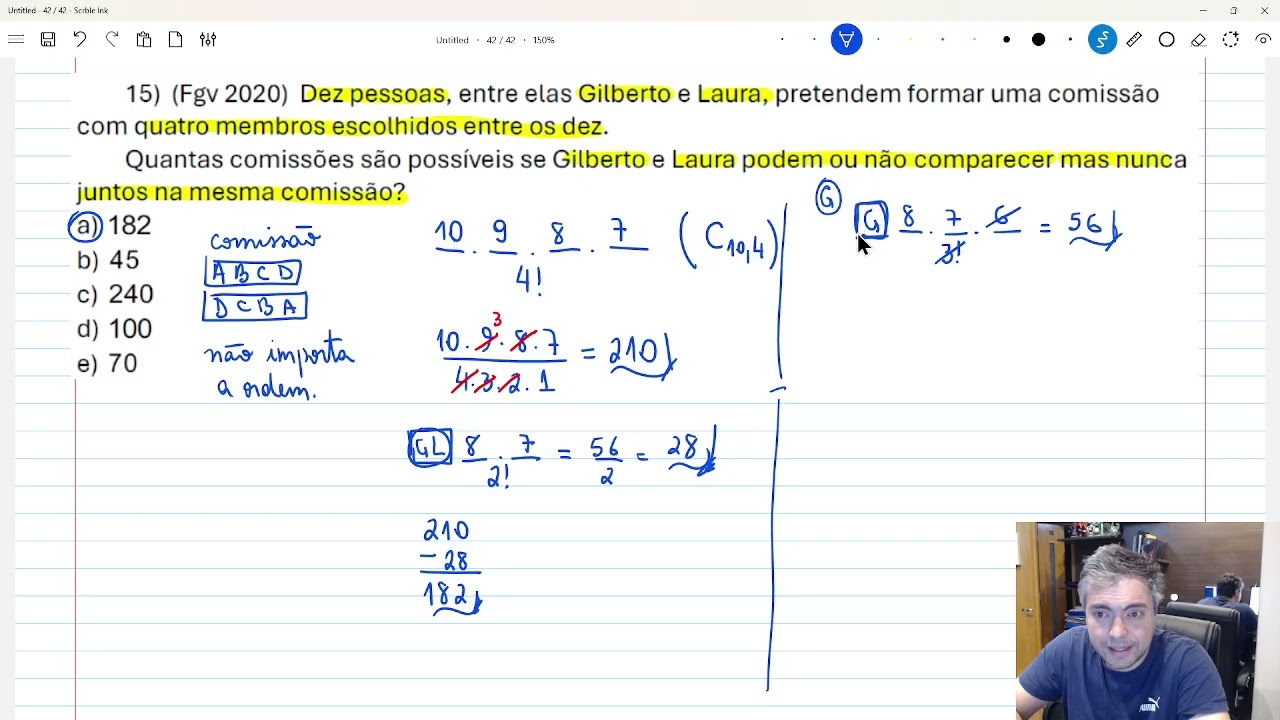 Untitled - 42 / 42 - Scrble Ink
Untitled · 42 / 42 · 150%
15) (Fgv 2020) Dez pessoas, entre elas Gilberto e Laura, pretendem formar uma comissão
com quatro membros escolhidos entre os dez.
Quantas comissões são possíveis se Gilberto e Laura podem ou não comparecer mas nunca
juntos na mesma comissão?
a) 182
b) 45
c) 240
d) 100
e) 70
comissão
A B C D
D C B A
não importa
a ordem.
10 . 9 . 8 . 7 (C10,4)
4!
10 . 9 . 8 . 7 = 210
3
4 . 3 . 2 . 1
GL 8 . 7 = 56 = 28
2! 2
210
- 28
182
G
G 8 . 7 . 6 = 56
3!
PUMA